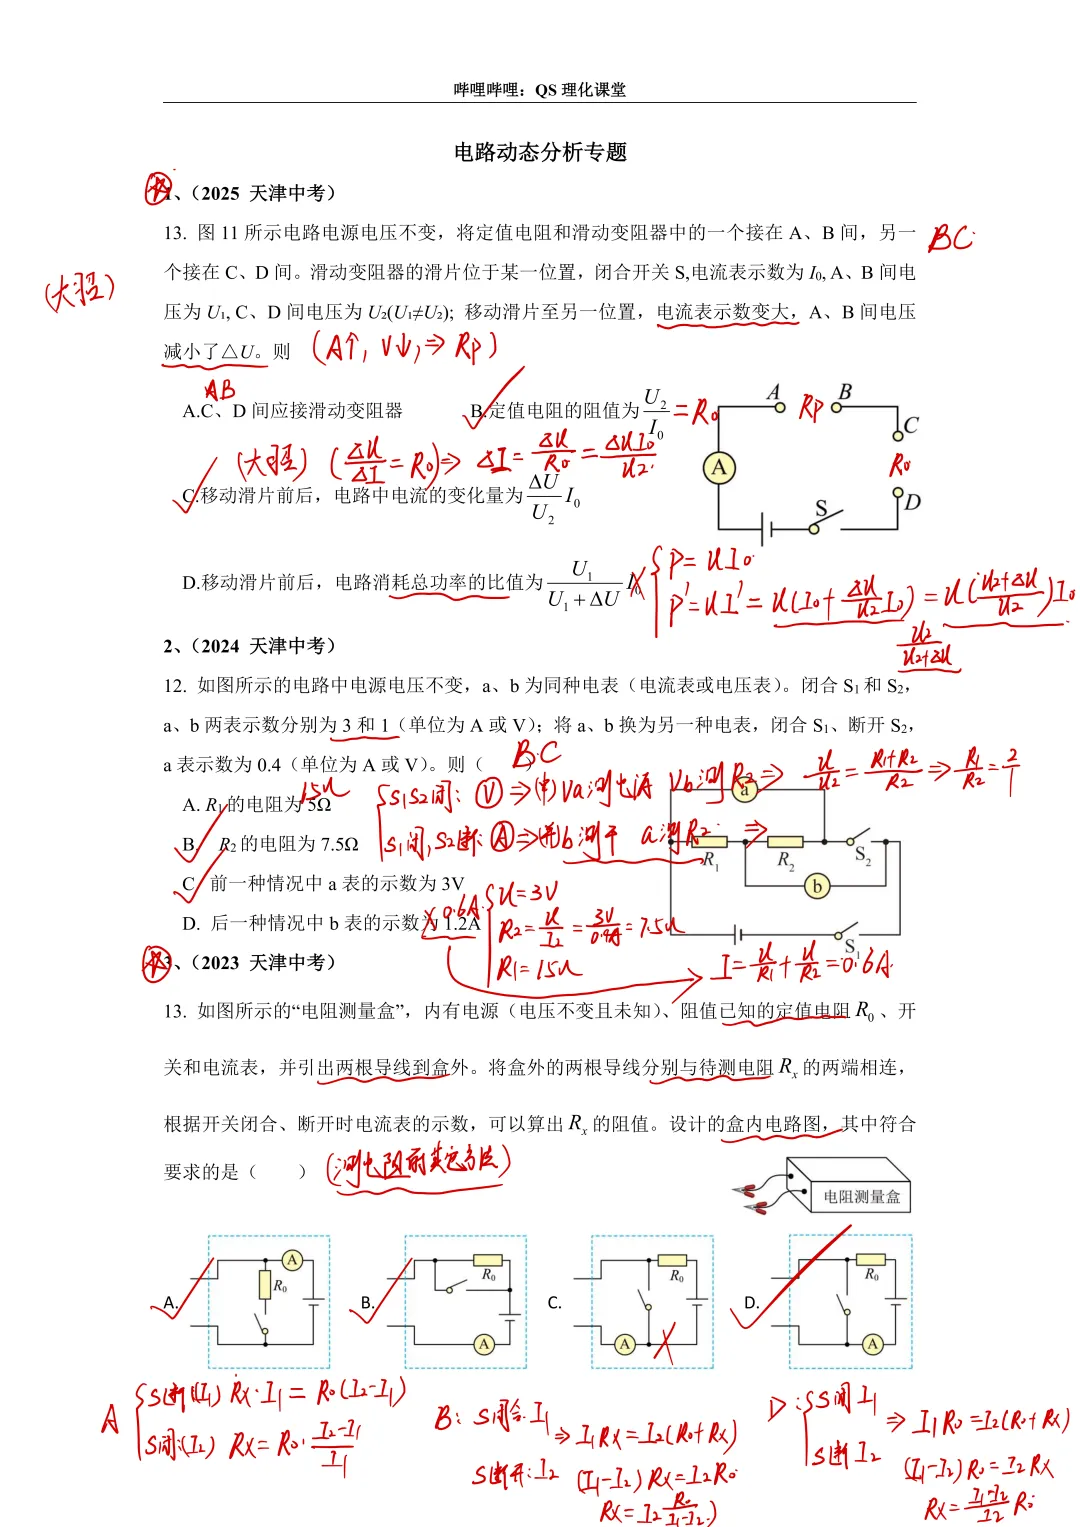 哔哩哔哩：QS 理化课堂
电路动态分析专题
1、（2025 天津中考）
13. 图 11 所示电路电源电压不变，将定值电阻和滑动变阻器中的一个接在 A、B 间，另一
BC
个接在 C、D 间。滑动变阻器的滑片位于某一位置，闭合开关 S,电流表示数为 I₀, A、B 间电
(大招)
压为 U₁, C、D 间电压为 U₂(U₁≠U₂); 移动滑片至另一位置，电流表示数变大，A、B 间电压
减小了△U。则
(A↑, V↓, ⇒ Rp)
AB
A.C、D 间应接滑动变阻器
B.定值电阻的阻值为 U₂/I₀
= R₀
A Rp B
C
R₀
D
A
S
(大招) (ΔU/ΔI = R₀) ⇒ ΔI = ΔU/R₀ = ΔU I₀/U₂
C.移动滑片前后，电路中电流的变化量为 ΔU/U₂ I₀
D.移动滑片前后，电路消耗总功率的比值为 U₁/(U₁+ΔU) I₀
P = UI₀
P' = UI' = U(I₀ + ΔU/U₂ I₀) = U((U₂+ΔU)/U₂)I₀
U₂/(U₂+ΔU)
2、（2024 天津中考）
12. 如图所示的电路中电源电压不变，a、b 为同种电表（电流表或电压表）。闭合 S₁ 和 S₂，
a、b 两表示数分别为 3 和 1（单位为 A 或 V）；将 a、b 换为另一种电表，闭合 S₁、断开 S₂，
a 表示数为 0.4（单位为 A 或 V）。则（ ）
BC
15Ω
A. R₁的电阻为 5Ω
S₁S₂闭: Ⓥ ⇒ (串) Va测电源 Vb测R₂ ⇒ U/U₂ = (R₁+R₂)/R₂ ⇒ R₁/R₂ = 2/1
B. R₂的电阻为 7.5Ω
S₁闭, S₂断: Ⓐ ⇒ (并) b测干 a测R₂ ⇒
a
R₁
R₂
S₂
b
S₁
C 前一种情况中 a 表的示数为 3V
D. 后一种情况中 b 表的示数为 1.2A
0.6A
U = 3V
R₂ = U/I₂ = 3V/0.4A = 7.5Ω
R₁ = 15Ω
I = U/R₁ + U/R₂ = 0.6A
3、（2023 天津中考）
13. 如图所示的“电阻测量盒”，内有电源（电压不变且未知）、阻值已知的定值电阻 R₀ 、开
关和电流表，并引出两根导线到盒外。将盒外的两根导线分别与待测电阻 Rₓ 的两端相连，
根据开关闭合、断开时电流表的示数，可以算出 Rₓ 的阻值。设计的盒内电路图，其中符合
要求的是（ ）
(测电阻的其它方法)
电阻测量盒
A.
A
R₀
B.
R₀
A
C.
R₀
A
D.
R₀
A
A
S断(I₁) Rx·I₁ = R₀(I₂-I₁)
S闭:(I₂) Rx = R₀·(I₂-I₁)/I₁
B: S闭合: I₁
S断开: I₂
⇒ I₁Rx = I₂(R₀+Rx)
(I₁-I₂)Rx = I₂R₀
Rx = I₂ R₀/(I₁-I₂)
D: S闭 I₁
S断 I₂
⇒ I₁R₀ = I₂(R₀+Rx)
(I₁-I₂)R₀ = I₂Rx
Rx = (I₁-I₂)/I₂ R₀